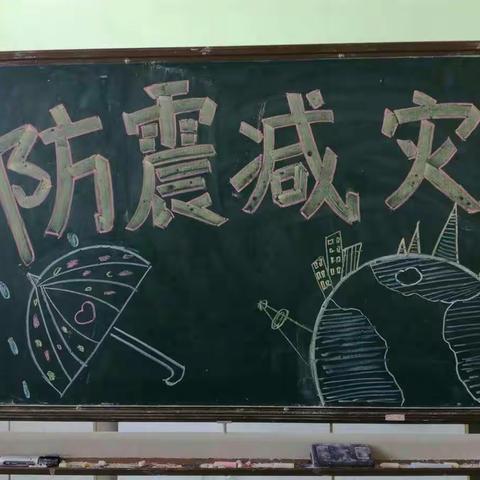 防震减灾